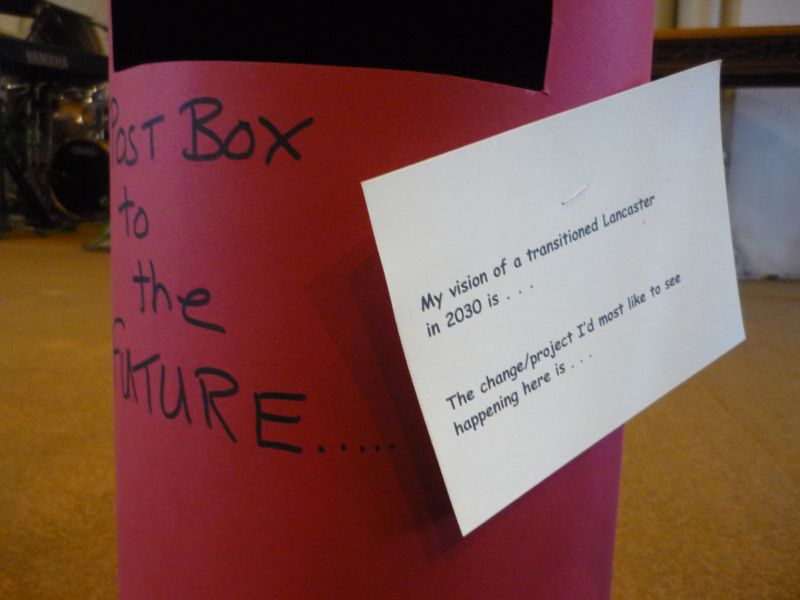 YAMAHA
POST BOX
to
the
FUTURE.....
My vision of a transitioned Lancaster
in 2030 is . . .
The change/project I'd most like to see
happening here is . . .